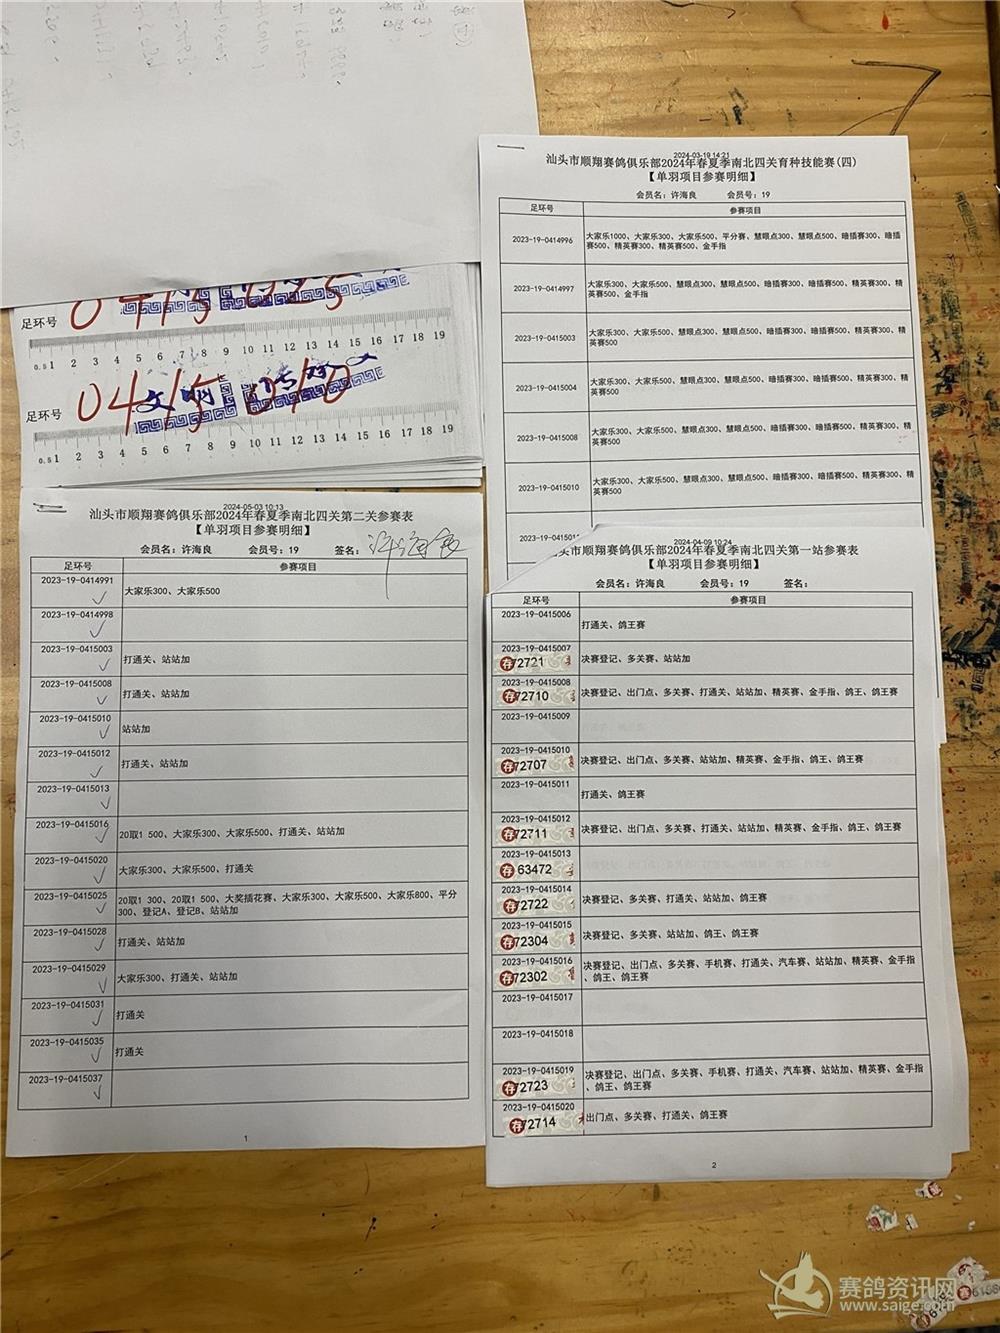 2024-03-19 14:21
汕头市顺翔赛鸽俱乐部2024年春夏季南北四关育种技能赛(四)
【单羽项目参赛明细】
会员名：许海良 会员号：19
足环号 参赛项目
2023-19-0414996 大家乐1000、大家乐300、大家乐500、平分赛、慧眼点300、慧眼点500、暗插赛300、暗插
赛500、精英赛300、精英赛500、金手指
2023-19-0414997 大家乐300、大家乐500、慧眼点300、慧眼点500、暗插赛300、暗插赛500、精英赛300、精
英赛500、金手指
2023-19-0415003 大家乐300、大家乐500、慧眼点300、慧眼点500、暗插赛300、暗插赛500、精英赛300、精
英赛500
2023-19-0415004 大家乐300、大家乐500、慧眼点300、慧眼点500、暗插赛300、暗插赛500、精英赛300、精
英赛500
2023-19-0415008 大家乐300、大家乐500、慧眼点300、慧眼点500、暗插赛300、暗插赛500、精英赛300、精
英赛500
2023-19-0415010 大家乐300、大家乐500、慧眼点300、慧眼点500、暗插赛300、暗插赛500、精英赛300、精
英赛500
足环号 0415025
0.5 1 2 3 4 5 6 7 8 9 10 11 12 13 14 15 16 17 18 19
足环号 0415010
文明
0.5 1 2 3 4 5 6 7 8 9 10 11 12 13 14 15 16 17 18 19
2024-05-03 10:13
汕头市顺翔赛鸽俱乐部2024年春夏季南北四关第二关参赛表
【单羽项目参赛明细】
会员名：许海良 会员号：19 签名：许海良
足环号 参赛项目
2023-19-0414991 大家乐300、大家乐500
2023-19-0414998
2023-19-0415003 打通关、站站加
2023-19-0415008 打通关、站站加
2023-19-0415010 站站加
2023-19-0415012 打通关、站站加
2023-19-0415013
2023-19-0415016 20取1 500、大家乐300、大家乐500、打通关、站站加
2023-19-0415020 大家乐300、大家乐500、打通关
2023-19-0415025 20取1 300、20取1 500、大奖插花赛、大家乐300、大家乐500、大家乐800、平分
300、登记A、登记B、站站加
2023-19-0415028 打通关、站站加
2023-19-0415029 大家乐300、打通关、站站加
2023-19-0415031 打通关
2023-19-0415035 打通关
2023-19-0415037
1
2024-04-09 10:24
汕头市顺翔赛鸽俱乐部2024年春夏季南北四关第一站参赛表
【单羽项目参赛明细】
会员名：许海良 会员号：19 签名：
足环号 参赛项目
2023-19-0415006 打通关、鸽王赛
2023-19-0415007 决赛登记、多关赛、站站加
存 72721
2023-19-0415008 决赛登记、出门点、多关赛、打通关、站站加、精英赛、金手指、鸽王、鸽王赛
存 72710
2023-19-0415009
2023-19-0415010 决赛登记、出门点、多关赛、站站加、精英赛、金手指、鸽王、鸽王赛
存 72707
2023-19-0415011 打通关、鸽王赛
2023-19-0415012 决赛登记、出门点、多关赛、打通关、站站加、精英赛、金手指、鸽王、鸽王赛
存 72711
2023-19-0415013
存 63472
2023-19-0415014 决赛登记、多关赛、打通关、站站加、鸽王赛
存 72722
2023-19-0415015 决赛登记、多关赛、站站加、鸽王、鸽王赛
存 72304
2023-19-0415016 决赛登记、出门点、多关赛、手机赛、打通关、汽车赛、站站加、精英赛、金手指
、鸽王、鸽王赛
存 72302
2023-19-0415017
2023-19-0415018
2023-19-0415019 决赛登记、出门点、多关赛、手机赛、打通关、汽车赛、站站加、精英赛、金手指
、鸽王、鸽王赛
存 72723
2023-19-0415020 出门点、多关赛、打通关、鸽王赛
存 72714
2
赛鸽资讯网
www.saige.com